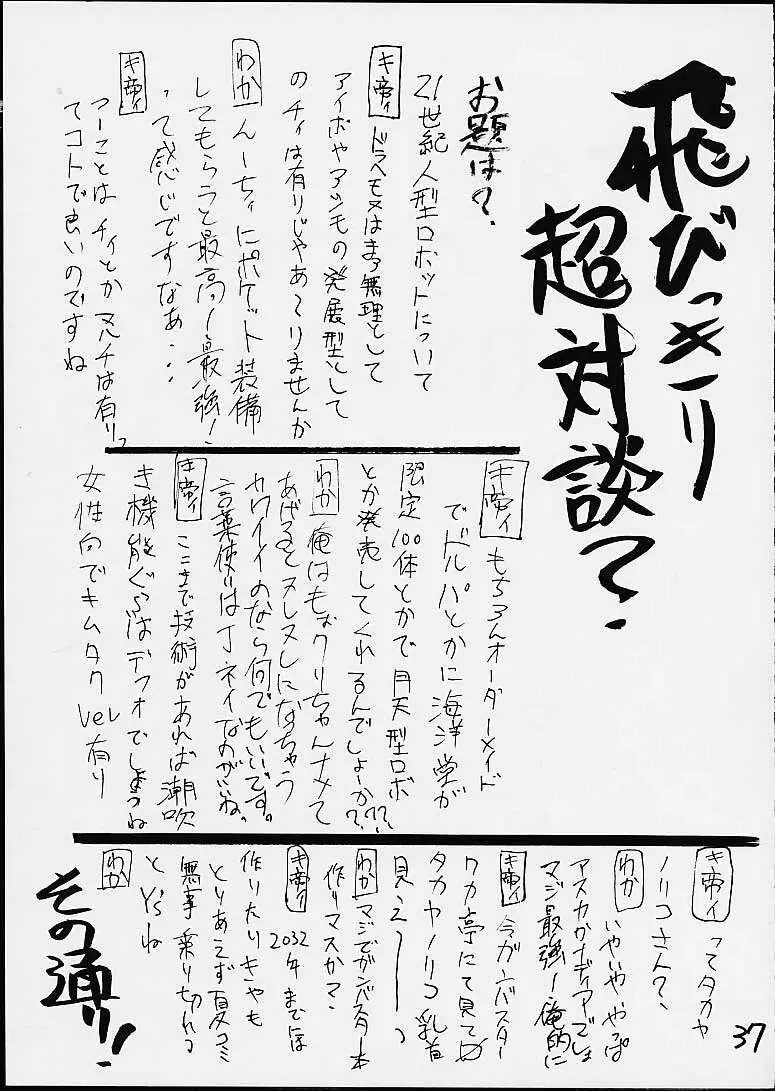 飛びっきり
超対談？
お題は？
21世紀人型ロボットについて
キ帝ィ ドラへもヌはまづ無理として
アイボやアシモの発展型として
のチィは有りじゃあーりませんか
わか んーちぃにポケット装備
してもらうと最高ー！最強！
って感じですなぁ・・・
キ帝ィ
つーことはチィとかマルチは有りっ
てコトで良いのですね
キ帝ィ もちろんオーダーメイド
でドルパとかに海洋堂が
限定100体とかで月天型ロボ
とか発売してくれるんでしょーか??
わか 俺はもぉクリちゃんナメて
あげるとヌレヌレになっちゃう
カワイイのなら何でもいいです。
言葉使いはテイネイなのがいいね。
キ帝ィ ここまで技術があれば潮吹
き機能ぐらいはデフォでしょうね
女性向でキムタクver有り
キ帝ィ ってタカヤ
ノリコさん?、
わか いやいややっぱ
アスカかナディアでしょ
マジ最強！俺的に
キ帝ィ 今ガンバスター
ワカ亭にて見て
タカヤノリコ乳首
見えーーっ
わか マジでガンバスター本
作りマスか？
キ帝ィ 2032年までには
作りたりきやも
とりあえず夏コミ
無事乗り切れる
とY'sね
わか
その通り！
37